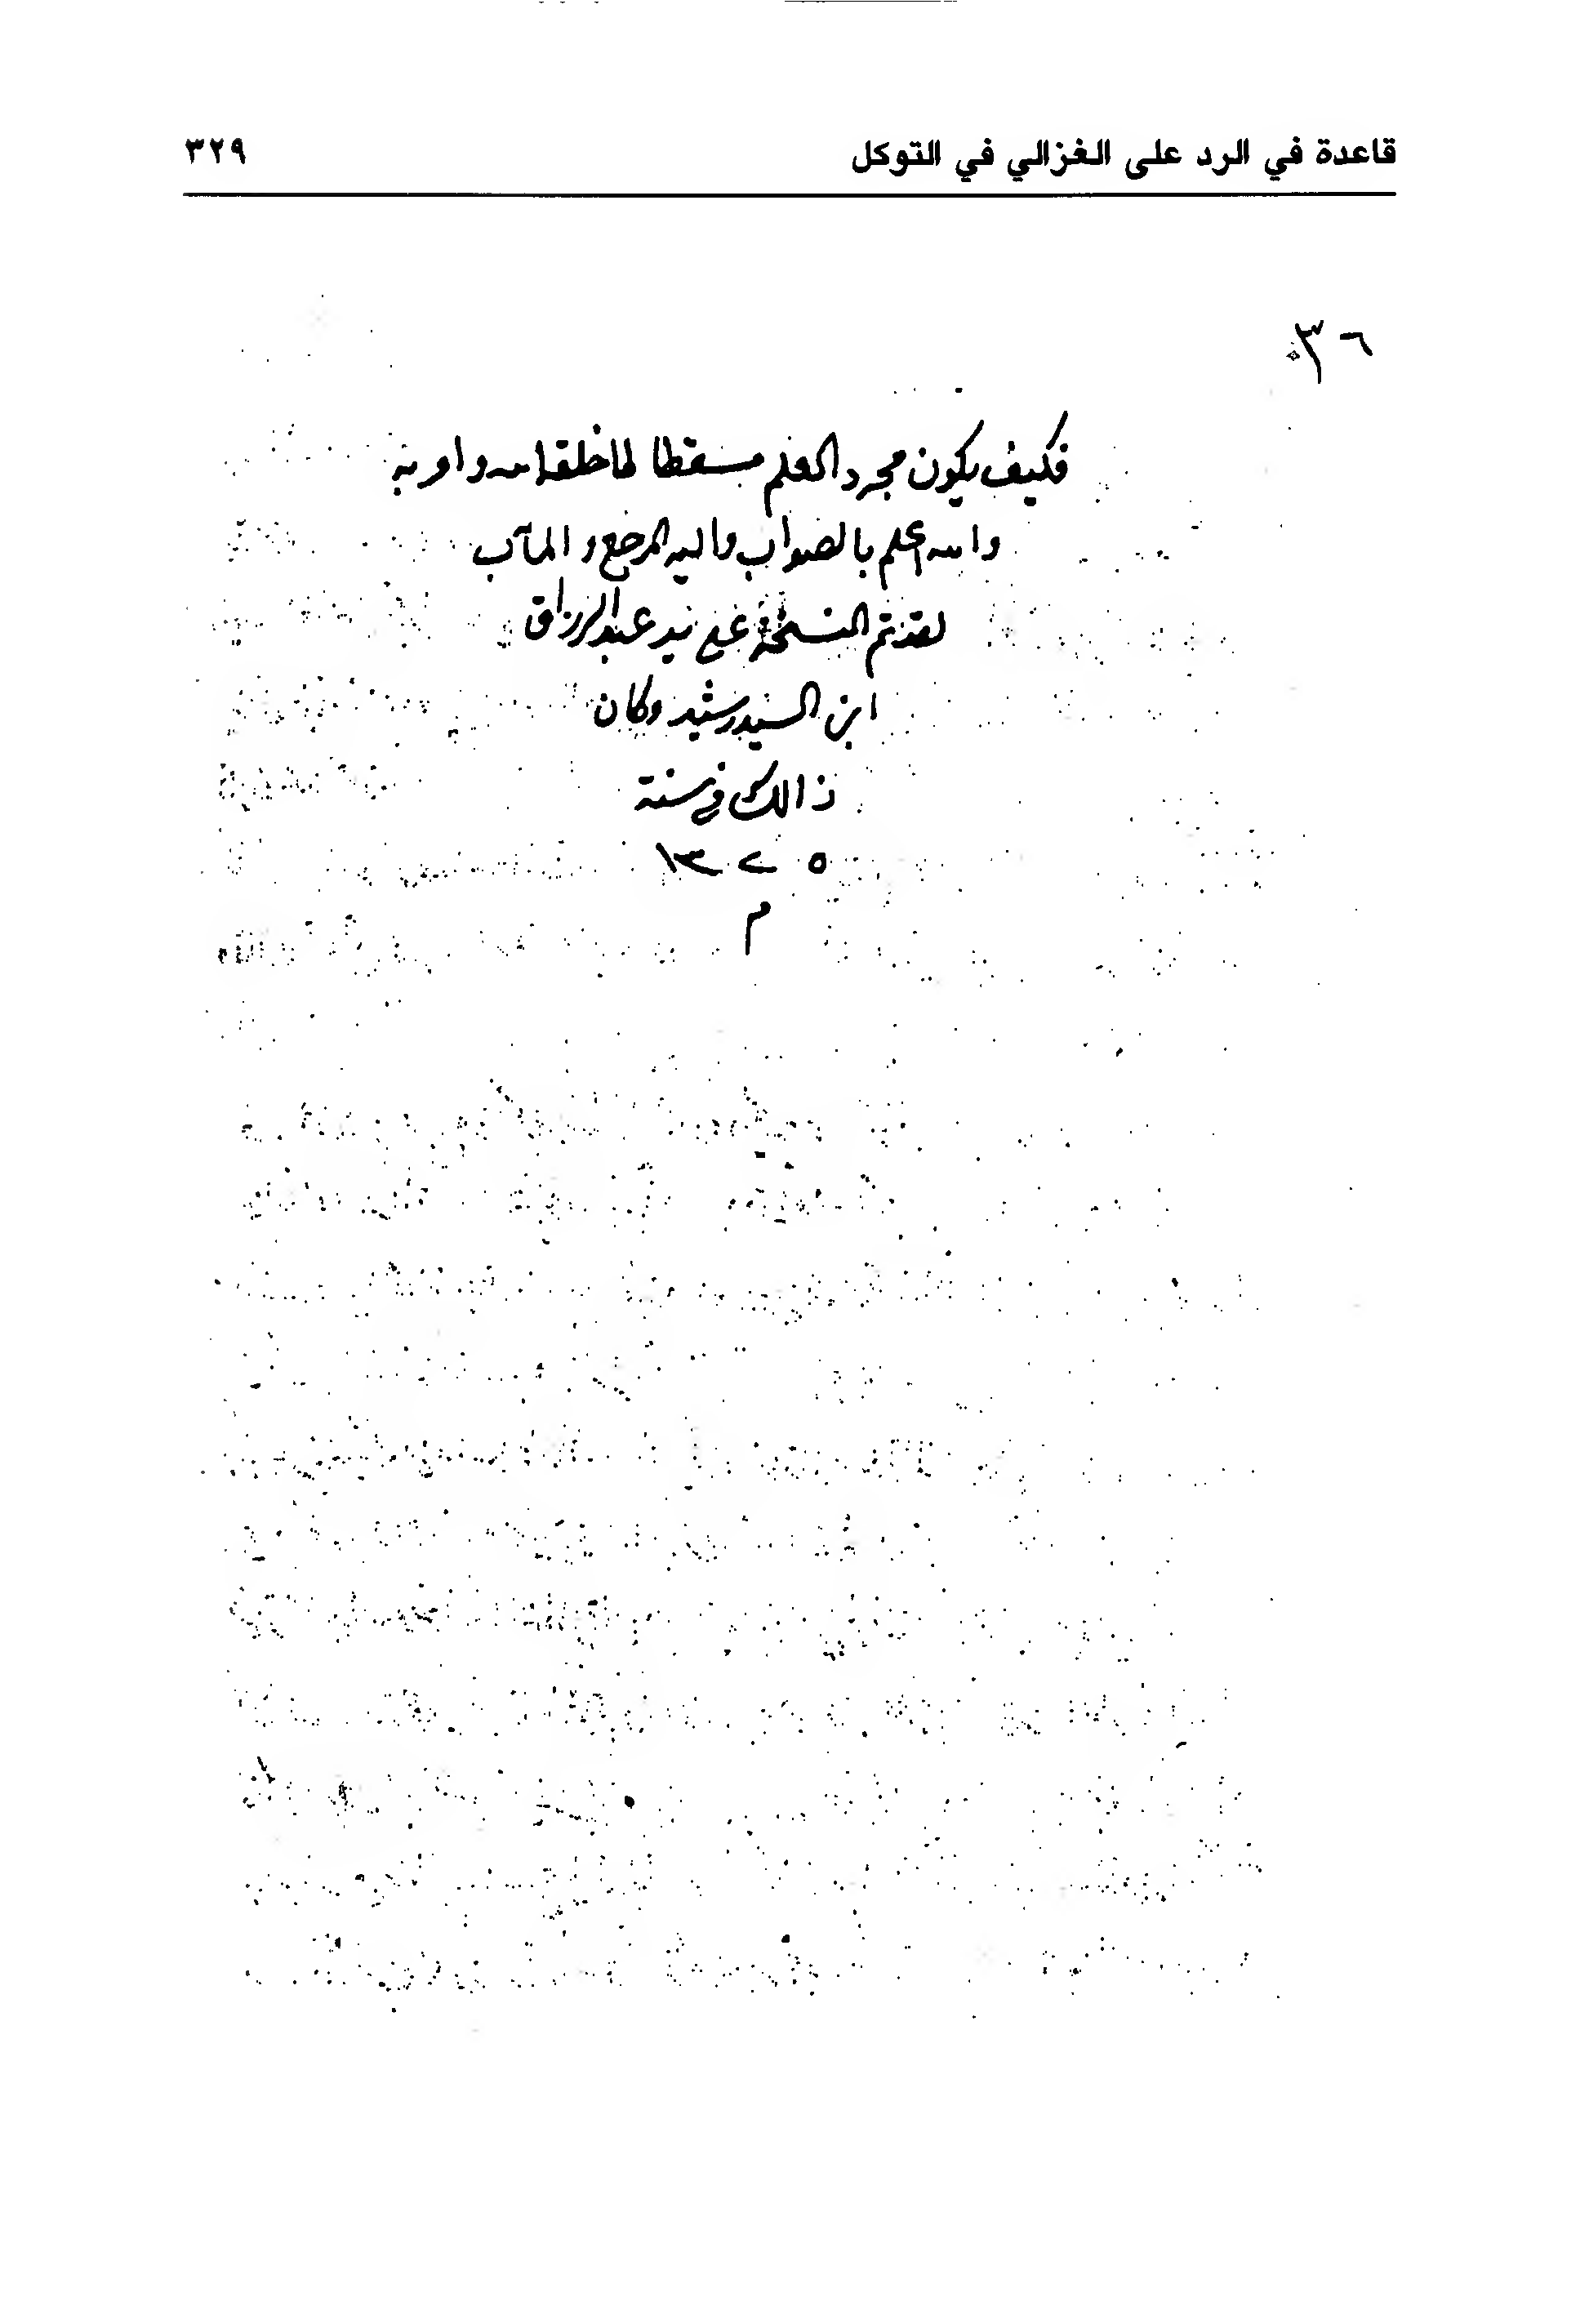 قاعدة في الرد على الغزالي في التوكل ٣٢٩
٣٦
فكيف يكون مجرد العلم مسقطا لما خلقه الله وامر به
والله اعلم بالصواب واليه المرجع والمآب
لقد تم النسخة على يد عبد الرزاق
ابن السيد رشيد وكان
ذالك في سنة
١٣٢٥
م